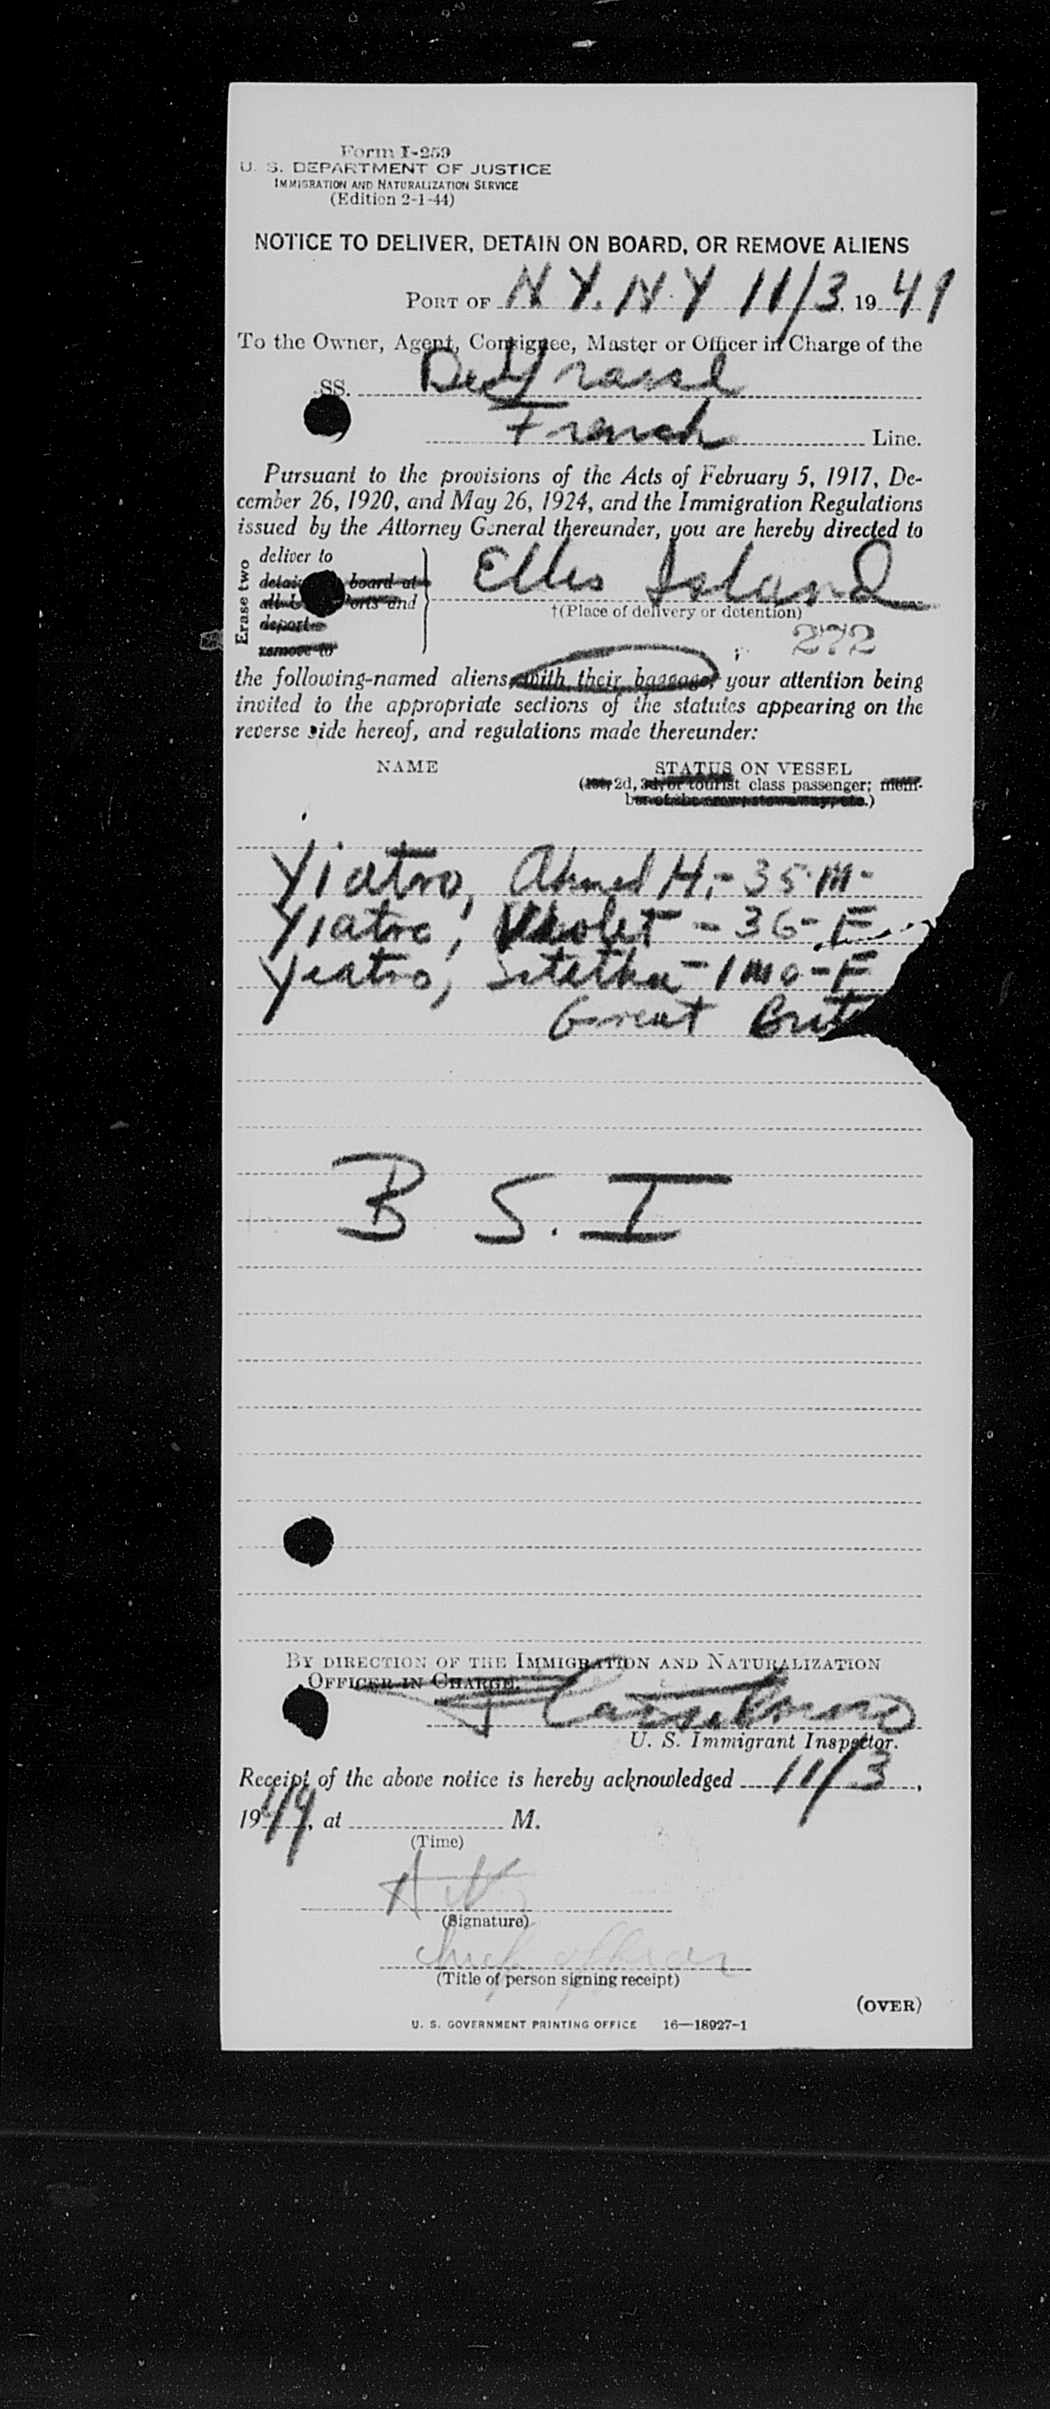 Form I-259
U. S. DEPARTMENT OF JUSTICE
IMMIGRATION AND NATURALIZATION SERVICE
(Edition 2-1-44)
NOTICE TO DELIVER, DETAIN ON BOARD, OR REMOVE ALIENS
PORT OF N Y. N. Y 11/3, 1949
To the Owner, Agent, Consignee, Master or Officer in Charge of the
SS. De Grasse
French Line.
Pursuant to the provisions of the Acts of February 5, 1917, De-
cember 26, 1920, and May 26, 1924, and the Immigration Regulations
issued by the Attorney General thereunder, you are hereby directed to
Erase two
deliver to
board at
and
deport
remove to
Ellis Island
†(Place of delivery or detention)
272
the following-named aliens, with their baggage, your attention being
invited to the appropriate sections of the statutes appearing on the
reverse side hereof, and regulations made thereunder:
NAME STATUS ON VESSEL
(1st, 2d, 3d, or tourist class passenger; mem-
ber of the crew, stowaway, etc.)
Yiatro, Ahmed H. - 35 - M -
Yiatro, Violet - 36 - F
Yiatro, - 1 mo - F
Great
B S. I
BY DIRECTION OF THE IMMIGRATION AND NATURALIZATION
OFFICER IN CHARGE.
U. S. Immigrant Inspector.
Receipt of the above notice is hereby acknowledged 11/3,
1949, at M.
(Time)
(Signature)
chief officer
(Title of person signing receipt)
(OVER)
U. S. GOVERNMENT PRINTING OFFICE 16—18927-1